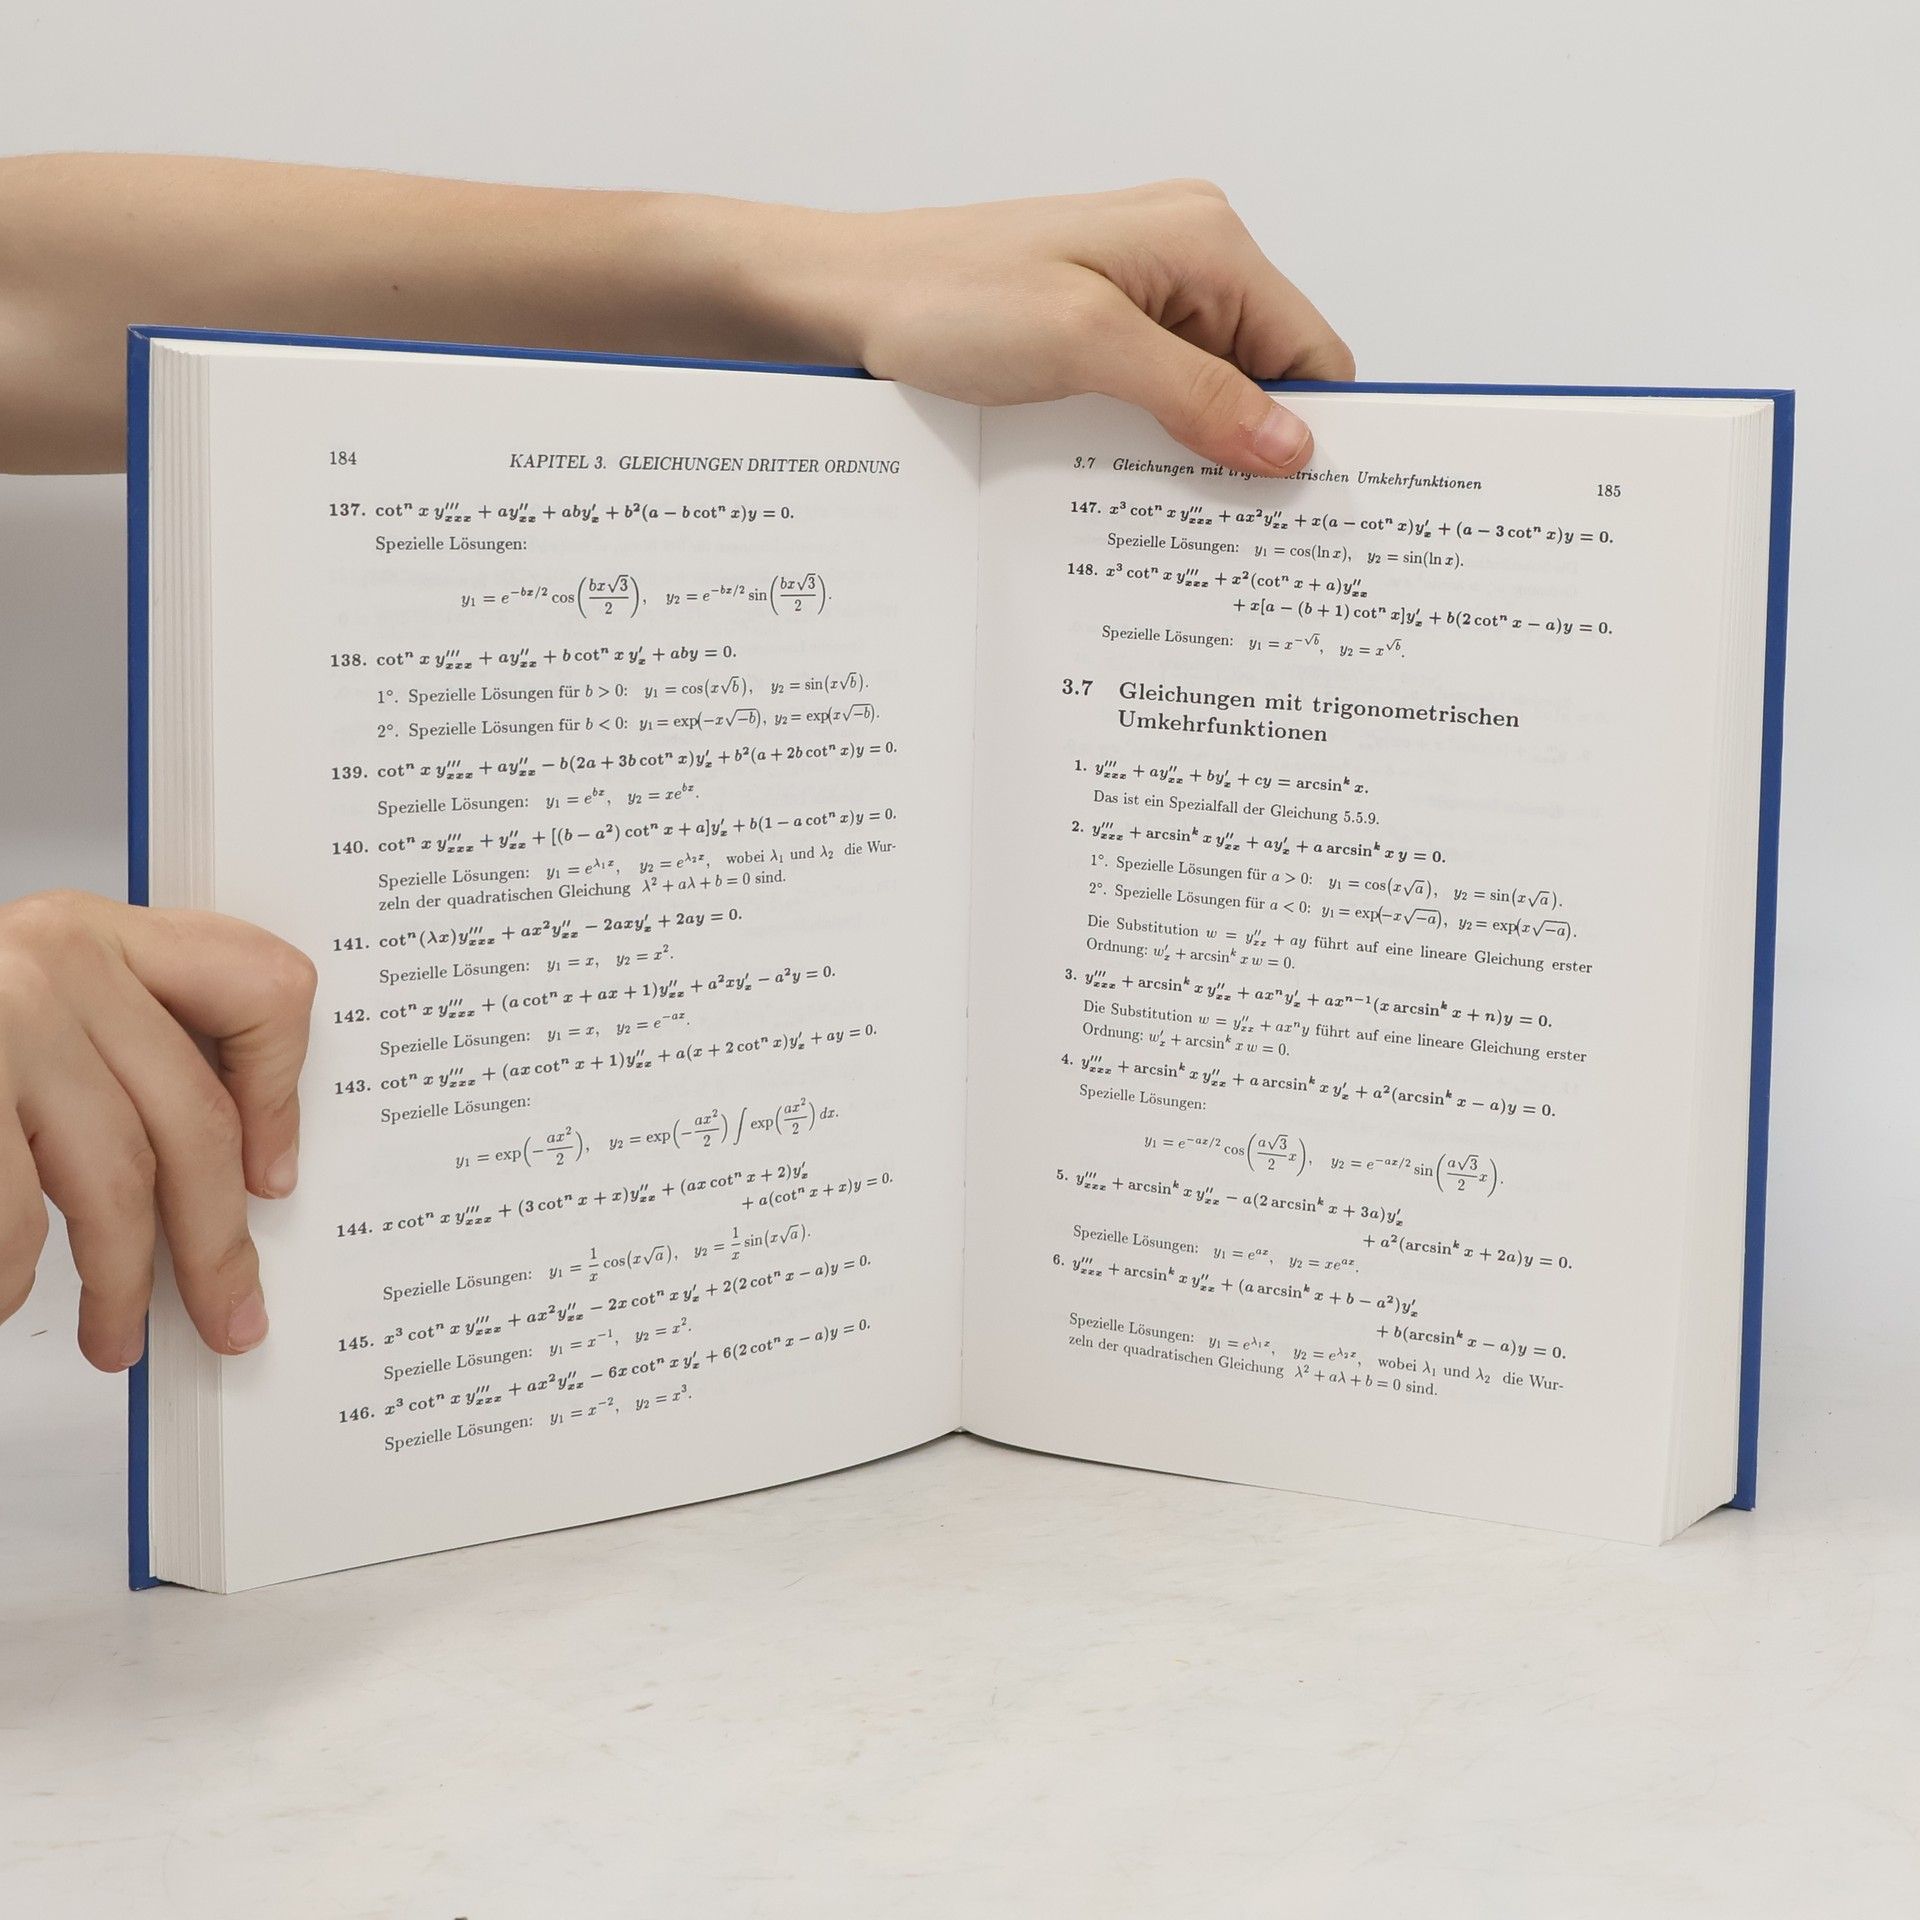 184 KAPITEL 3. GLEICHUNGEN DRITTER ORDNUNG
137. cotⁿ x y‴ₓₓₓ + ay″ₓₓ + aby′ₓ + b²(a − b cotⁿ x)y = 0.
Spezielle Lösungen:
y₁ = e^(−bx/2) cos(bx√3/2), y₂ = e^(−bx/2) sin(bx√3/2).
138. cotⁿ x y‴ₓₓₓ + ay″ₓₓ + b cotⁿ x y′ₓ + aby = 0.
1°. Spezielle Lösungen für b > 0: y₁ = cos(x√b), y₂ = sin(x√b).
2°. Spezielle Lösungen für b < 0: y₁ = exp(−x√−b), y₂ = exp(x√−b).
139. cotⁿ x y‴ₓₓₓ + ay″ₓₓ − b(2a + 3b cotⁿ x)y′ₓ + b²(a + 2b cotⁿ x)y = 0.
Spezielle Lösungen: y₁ = e^(bx), y₂ = xe^(bx).
140. cotⁿ x y‴ₓₓₓ + y″ₓₓ + [(b − a²) cotⁿ x + a]y′ₓ + b(1 − a cotⁿ x)y = 0.
Spezielle Lösungen: y₁ = e^(λ₁x), y₂ = e^(λ₂x), wobei λ₁ und λ₂ die Wur-
zeln der quadratischen Gleichung λ² + aλ + b = 0 sind.
141. cotⁿ(λx)y‴ₓₓₓ + ax²y″ₓₓ − 2axy′ₓ + 2ay = 0.
Spezielle Lösungen: y₁ = x, y₂ = x².
142. cotⁿ x y‴ₓₓₓ + (a cotⁿ x + ax + 1)y″ₓₓ + a²xy′ₓ − a²y = 0.
Spezielle Lösungen: y₁ = x, y₂ = e^(−ax).
143. cotⁿ x y‴ₓₓₓ + (ax cotⁿ x + 1)y″ₓₓ + a(x + 2 cotⁿ x)y′ₓ + ay = 0.
Spezielle Lösungen:
y₁ = exp(−ax²/2), y₂ = exp(−ax²/2) ∫ exp(ax²/2) dx.
144. x cotⁿ x y‴ₓₓₓ + (3 cotⁿ x + x)y″ₓₓ + (ax cotⁿ x + 2)y′ₓ
+ a(cotⁿ x + x)y = 0.
Spezielle Lösungen: y₁ = 1/x cos(x√a), y₂ = 1/x sin(x√a).
145. x³ cotⁿ x y‴ₓₓₓ + ax²y″ₓₓ − 2x cotⁿ x y′ₓ + 2(2 cotⁿ x − a)y = 0.
Spezielle Lösungen: y₁ = x⁻¹, y₂ = x².
146. x³ cotⁿ x y‴ₓₓₓ + ax²y″ₓₓ − 6x cotⁿ x y′ₓ + 6(2 cotⁿ x − a)y = 0.
Spezielle Lösungen: y₁ = x⁻², y₂ = x³.
3.7 Gleichungen mit Umkehrfunktionen 185
147. x³ cotⁿ x y‴ₓₓₓ + ax²y″ₓₓ + x(a − cotⁿ x)y′ₓ + (a − 3 cotⁿ x)y = 0.
Spezielle Lösungen: y₁ = cos(ln x), y₂ = sin(ln x).
148. x³ cotⁿ x y‴ₓₓₓ + x²(cotⁿ x + a)y″ₓₓ
+ x[a − (b + 1) cotⁿ x]y′ₓ + b(2 cotⁿ x − a)y = 0.
Spezielle Lösungen: y₁ = x^(−√b), y₂ = x^(√b).
3.7 Gleichungen mit trigonometrischen
Umkehrfunktionen
1. y‴ₓₓₓ + ay″ₓₓ + by′ₓ + cy = arcsinᵏ x.
Das ist ein Spezialfall der Gleichung 5.5.9.
2. y‴ₓₓₓ + arcsinᵏ x y″ₓₓ + ay′ₓ + a arcsinᵏ x y = 0.
1°. Spezielle Lösungen für a > 0: y₁ = cos(x√a), y₂ = sin(x√a).
2°. Spezielle Lösungen für a < 0: y₁ = exp(−x√−a), y₂ = exp(x√−a).
Die Substitution w = y″ₓₓ + ay führt auf eine lineare Gleichung erster
Ordnung: w′ₓ + arcsinᵏ x w = 0.
3. y‴ₓₓₓ + arcsinᵏ x y″ₓₓ + axⁿy′ₓ + axⁿ⁻¹(x arcsinᵏ x + n)y = 0.
Die Substitution w = y″ₓₓ + axⁿy führt auf eine lineare Gleichung erster
Ordnung: w′ₓ + arcsinᵏ x w = 0.
4. y‴ₓₓₓ + arcsinᵏ x y″ₓₓ + a arcsinᵏ x y′ₓ + a²(arcsinᵏ x − a)y = 0.
Spezielle Lösungen:
y₁ = e^(−ax/2) cos(a√3/2 x), y₂ = e^(−ax/2) sin(a√3/2 x).
5. y‴ₓₓₓ + arcsinᵏ x y″ₓₓ − a(2 arcsinᵏ x + 3a)y′ₓ
+ a²(arcsinᵏ x + 2a)y = 0.
Spezielle Lösungen: y₁ = e^(ax), y₂ = xe^(ax).
6. y‴ₓₓₓ + arcsinᵏ x y″ₓₓ + (a arcsinᵏ x + b − a²)y′ₓ
+ b(arcsinᵏ x − a)y = 0.
Spezielle Lösungen: y₁ = e^(λ₁x), y₂ = e^(λ₂x), wobei λ₁ und λ₂ die Wur-
zeln der quadratischen Gleichung λ² + aλ + b = 0 sind.